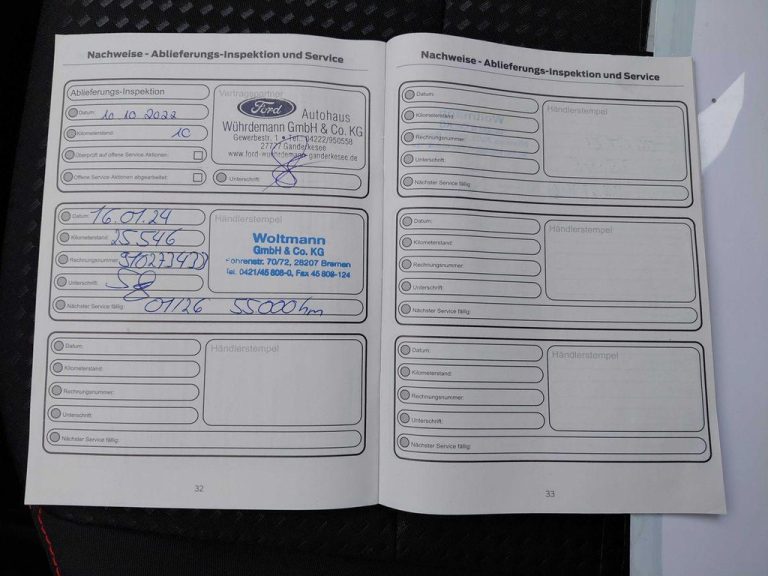 Nachweise - Ablieferungs-Inspektion und Service
Ablieferungs-Inspektion
Datum: 10.10.2022
Kilometerstand: 10
Überprüft auf offene Service-Aktionen:
Offene Service-Aktionen abgearbeitet:
Vertragspartner
Ford
Autohaus
Wührdemann GmbH & Co. KG
Gewerbestr. 1 • Tel.: 04222/950558
27777 Ganderkesee
www.ford-wuehrdemann-ganderkesee.de
Unterschrift:
Datum: 16.01.24
Kilometerstand: 25546
Rechnungsnummer:
Unterschrift:
Nächster Service fällig: 01/26 55000 km
Händlerstempel
Woltmann
GmbH & Co. KG
Föhrenstr. 70/72, 28207 Bremen
Tel. 0421/45 808-0, Fax 45 808-124
Datum:
Kilometerstand:
Rechnungsnummer:
Unterschrift:
Nächster Service fällig:
Händlerstempel
32
Nachweise - Ablieferungs-Inspektion und Service
Datum:
Kilometerstand:
Rechnungsnummer:
Unterschrift:
Nächster Service fällig:
Händlerstempel
Datum:
Kilometerstand:
Rechnungsnummer:
Unterschrift:
Nächster Service fällig:
Händlerstempel
Datum:
Kilometerstand:
Rechnungsnummer:
Unterschrift:
Nächster Service fällig:
Händlerstempel
33